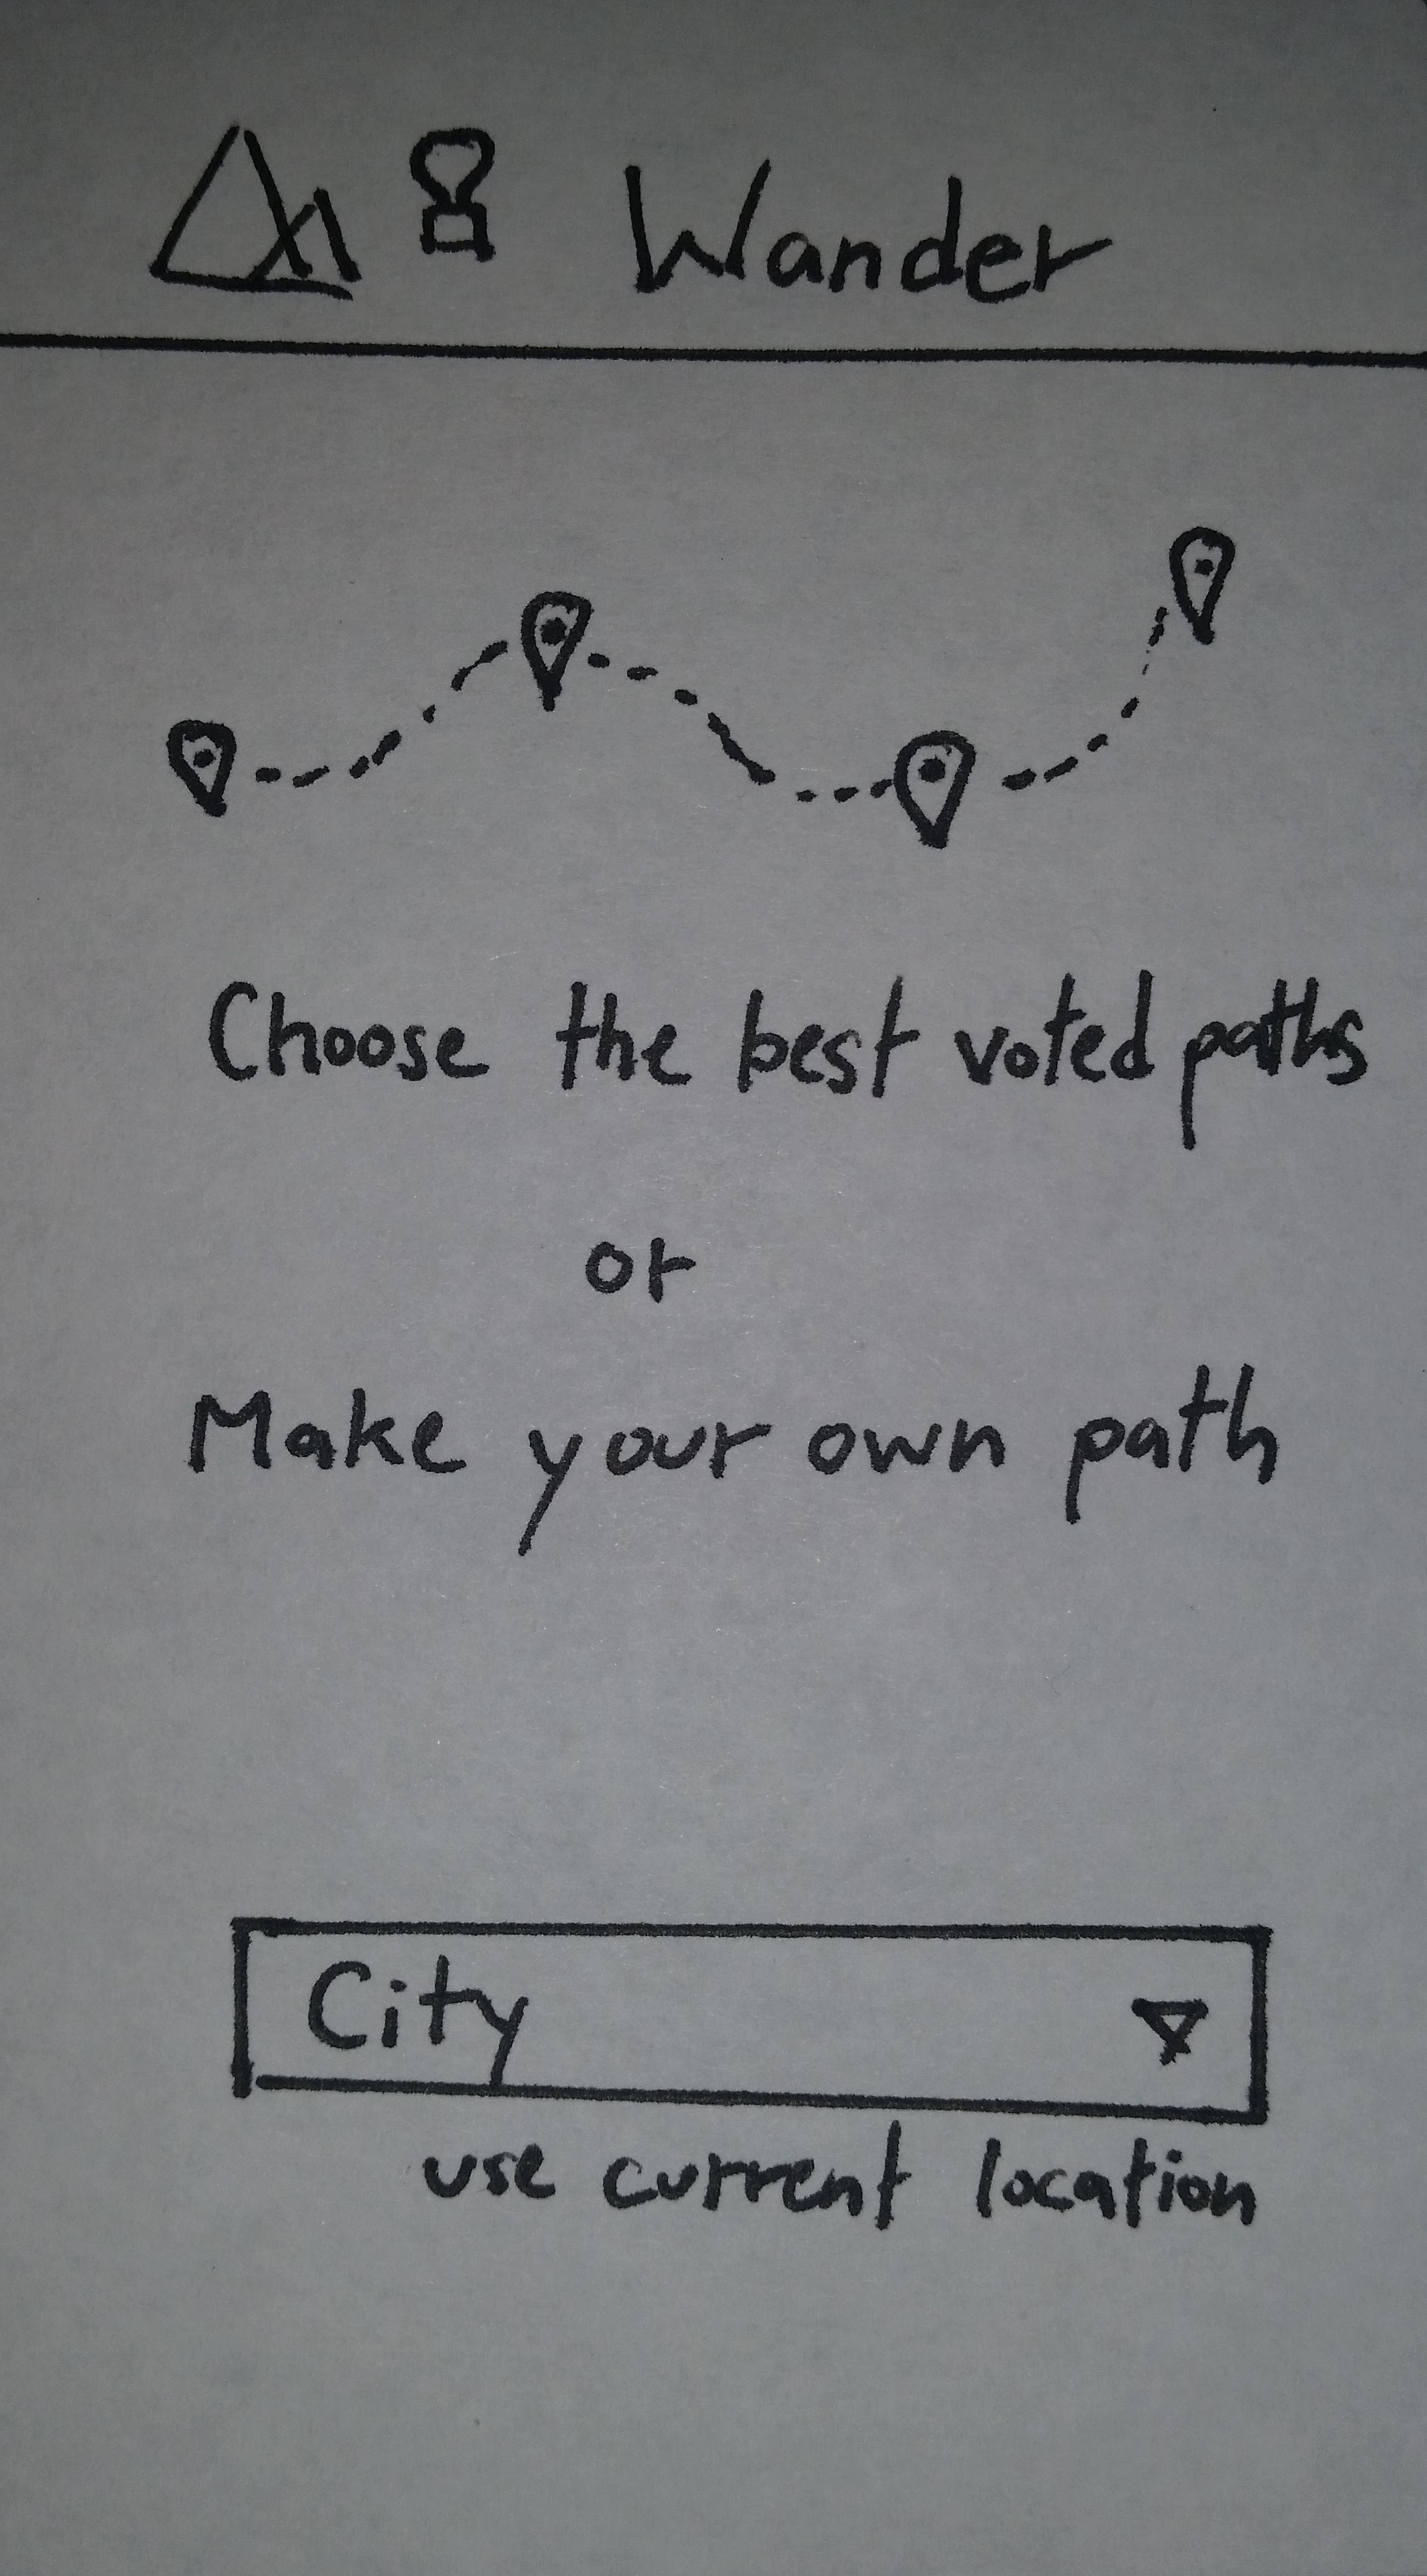 Wander
Choose the best voted paths
or
Make your own path
City
use current location